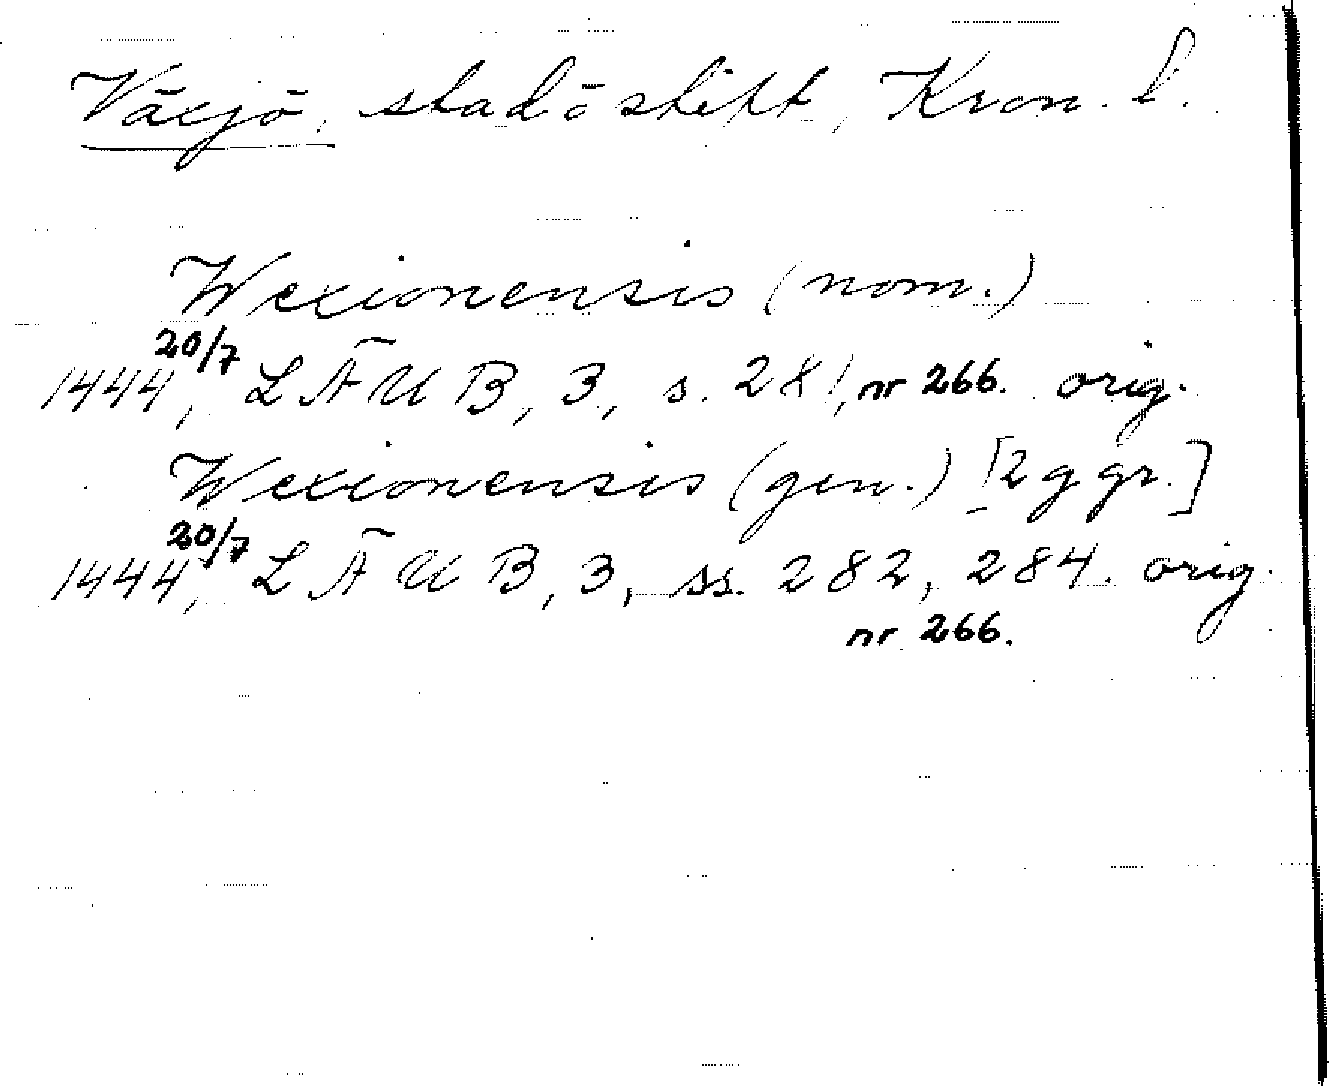 Växjö, stad ö stift, Kron. l.
Wexionensis (nom.)
1444 20/7, LÄUB, 3, s. 281, nr 266. orig.
Wexionensis (gen.) [2 ggr.]
1444 20/7, LÄUB, 3, ss. 282, 284. orig.
nr 266.